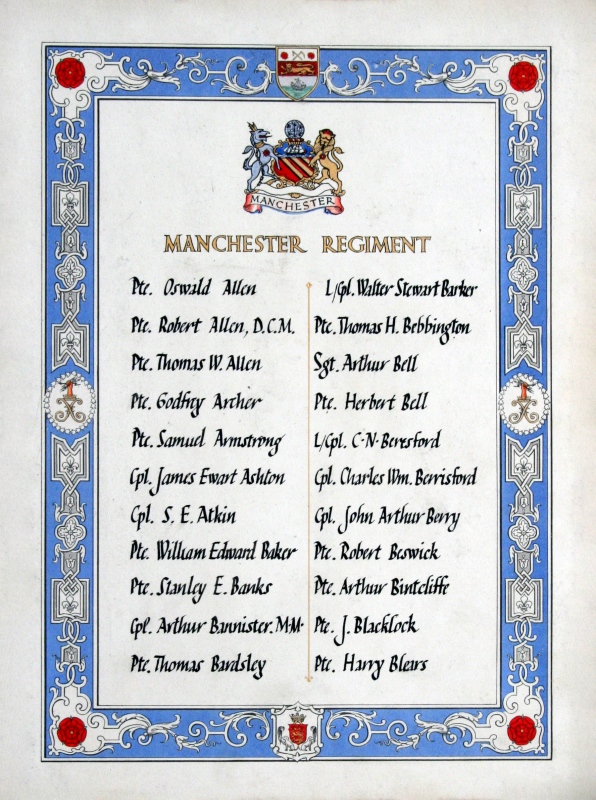 MANCHESTER
MANCHESTER REGIMENT
Pte. Oswald Allen
Pte. Robert Allen, D.C.M.
Pte. Thomas W. Allen
Pte. Godfrey Archer
Pte. Samuel Armstrong
Cpl. James Ewart Ashton
Cpl. S. E. Atkin
Pte. William Edward Baker
Pte. Stanley E. Banks
Cpl. Arthur Bannister. M·M·
Pte. Thomas Bardsley
L/Cpl. Walter Stewart Barker
Pte. Thomas H. Bebbington
Sgt. Arthur Bell
Pte. Herbert Bell
L/Cpl. C·N· Beresford
Cpl. Charles Wm. Berrisford
Cpl. John Arthur Berry
Pte. Robert Beswick
Pte. Arthur Bintcliffe
Pte. J. Blacklock
Pte. Harry Blears